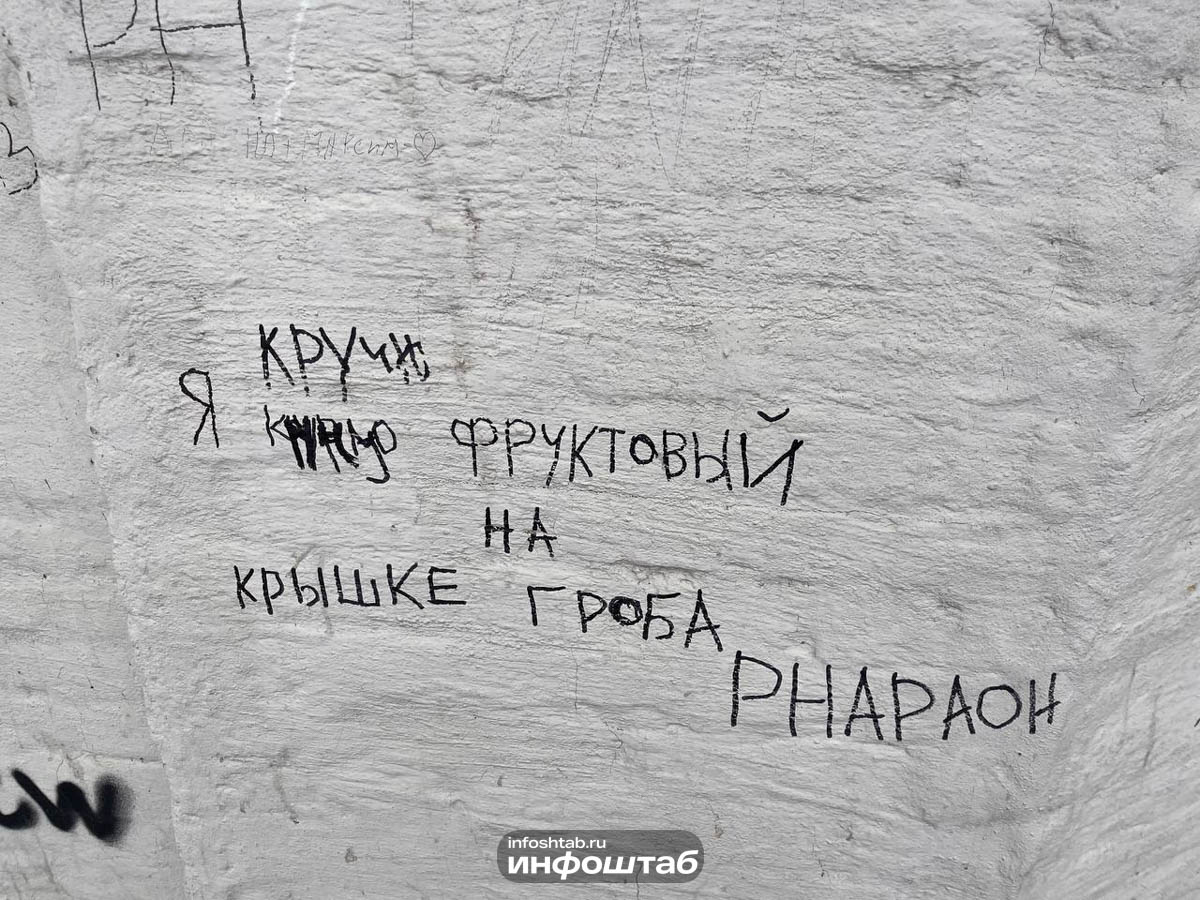 РН
Максим ♡
В
КРУЧУ
Я ФРУКТОВЫЙ
НА
КРЫШКЕ ГРОБА
PHАРАОН
infoshtab.ru
инфоштаб